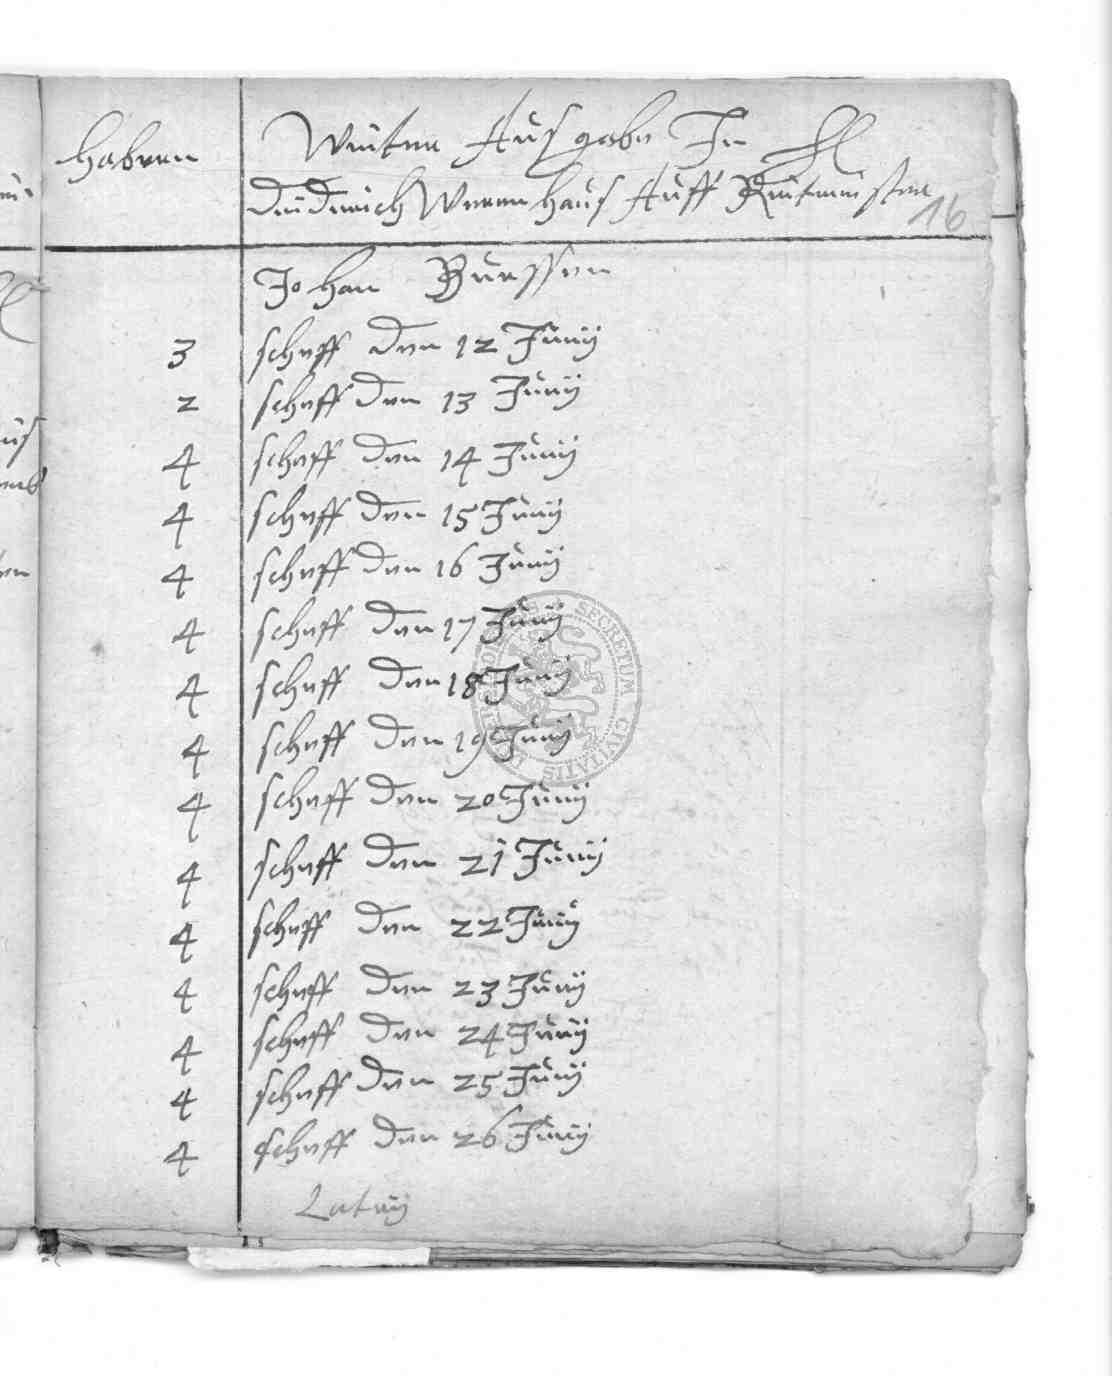 Haberen
Weiter Ausgabe In
Deiderich Weren haus Auff Reutmeister
16
Johan Buessen
3 scheff den 12 Junij
2 scheff den 13 Junij
4 scheff den 14 Junij
4 scheff den 15 Junij
4 scheff den 16 Junij
4 scheff den 17 Junij
4 scheff den 18 Junij
4 scheff den 19 Junij
4 scheff den 20 Junij
4 scheff den 21 Junij
4 scheff den 22 Junij
4 scheff den 23 Junij
4 scheff den 24 Junij
4 scheff den 25 Junij
4 scheff den 26 Junij
SECRETUM CIVITATIS